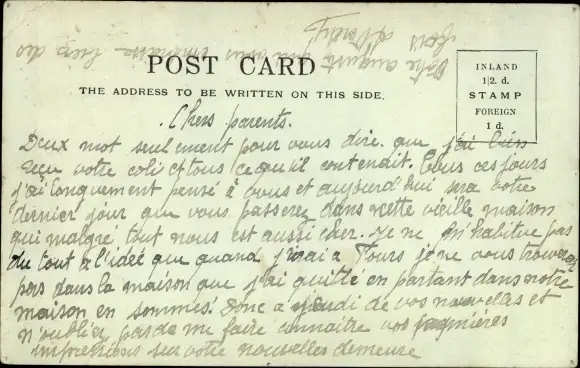 POST CARD
THE ADDRESS TO BE WRITTEN ON THIS SIDE.
INLAND
1|2. d.
STAMP
FOREIGN
1 d.
Chers parents.
Deux mot seulement pour vous dire que j'ai bien
reçu votre coli et tous ce qu'il contenait. Tous ces jours
j'ai longuement pensé à vous et aujourd'hui sera votre
dernier jour que vous passerez dans cette vieille maison
qui malgré tout nous est aussi cher. Je ne m'habitue pas
du tout à l'idée que quand j'irai à Tours je ne vous trouverai
pas dans la maison que j'ai quitté en partant dans notre
maison en sommes. Donc à jeudi de vos nouvelles et
n'oubliez pas de me faire connaître vos premières
impressions sur votre nouvelles demeure
qui vous embrasse bien des
fois